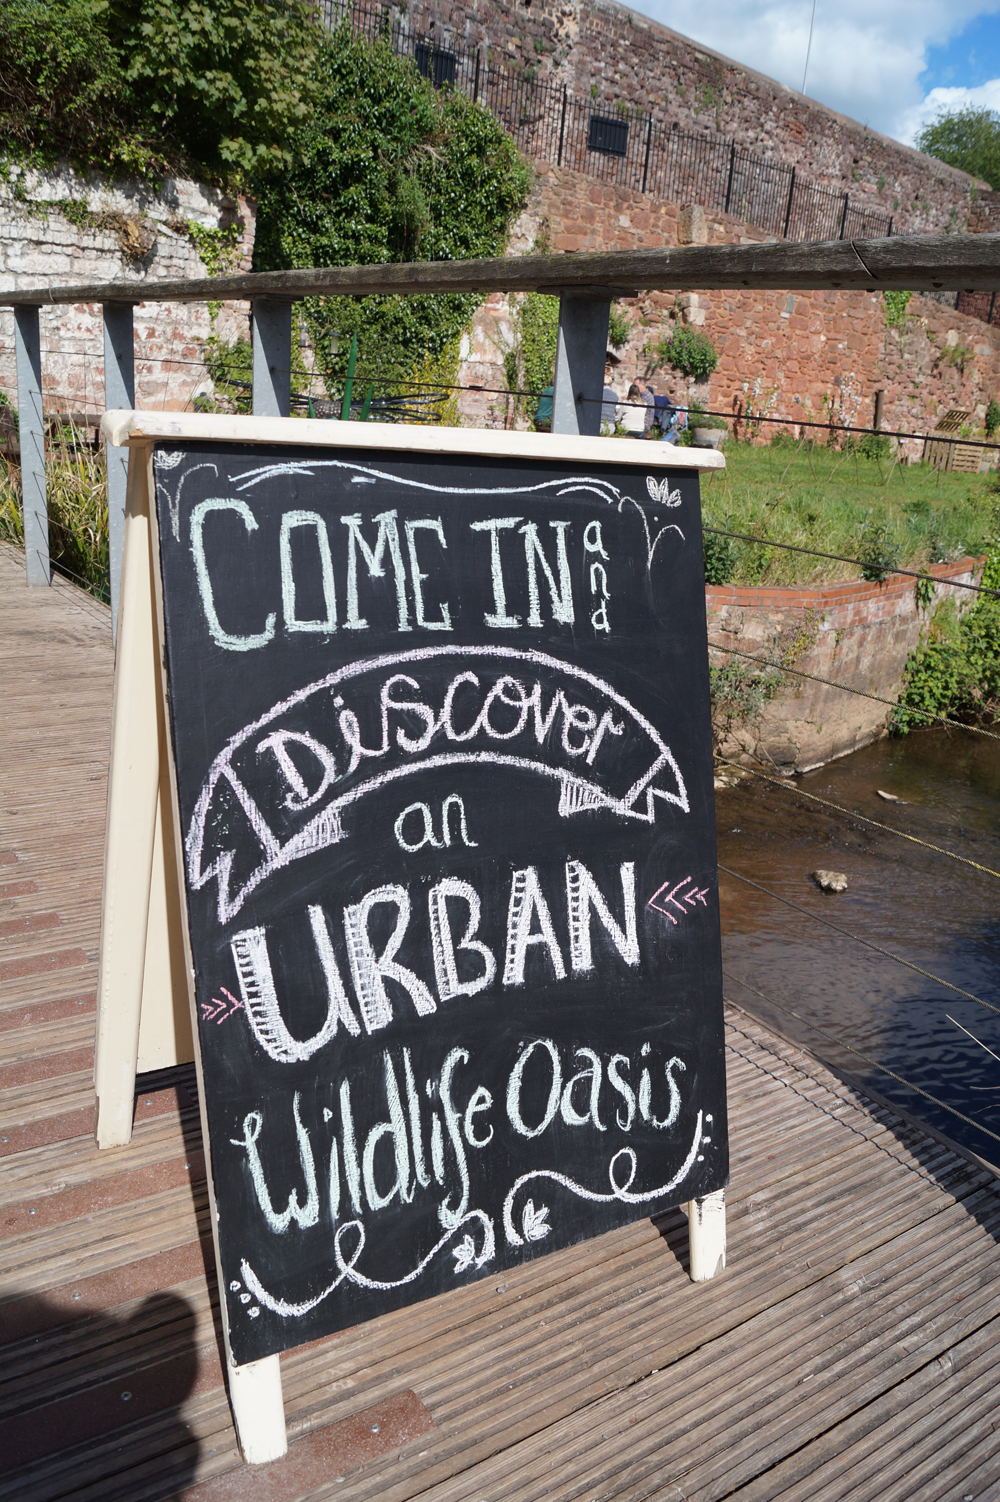 COME IN and
Discover
an
URBAN
Wildlife Oasis